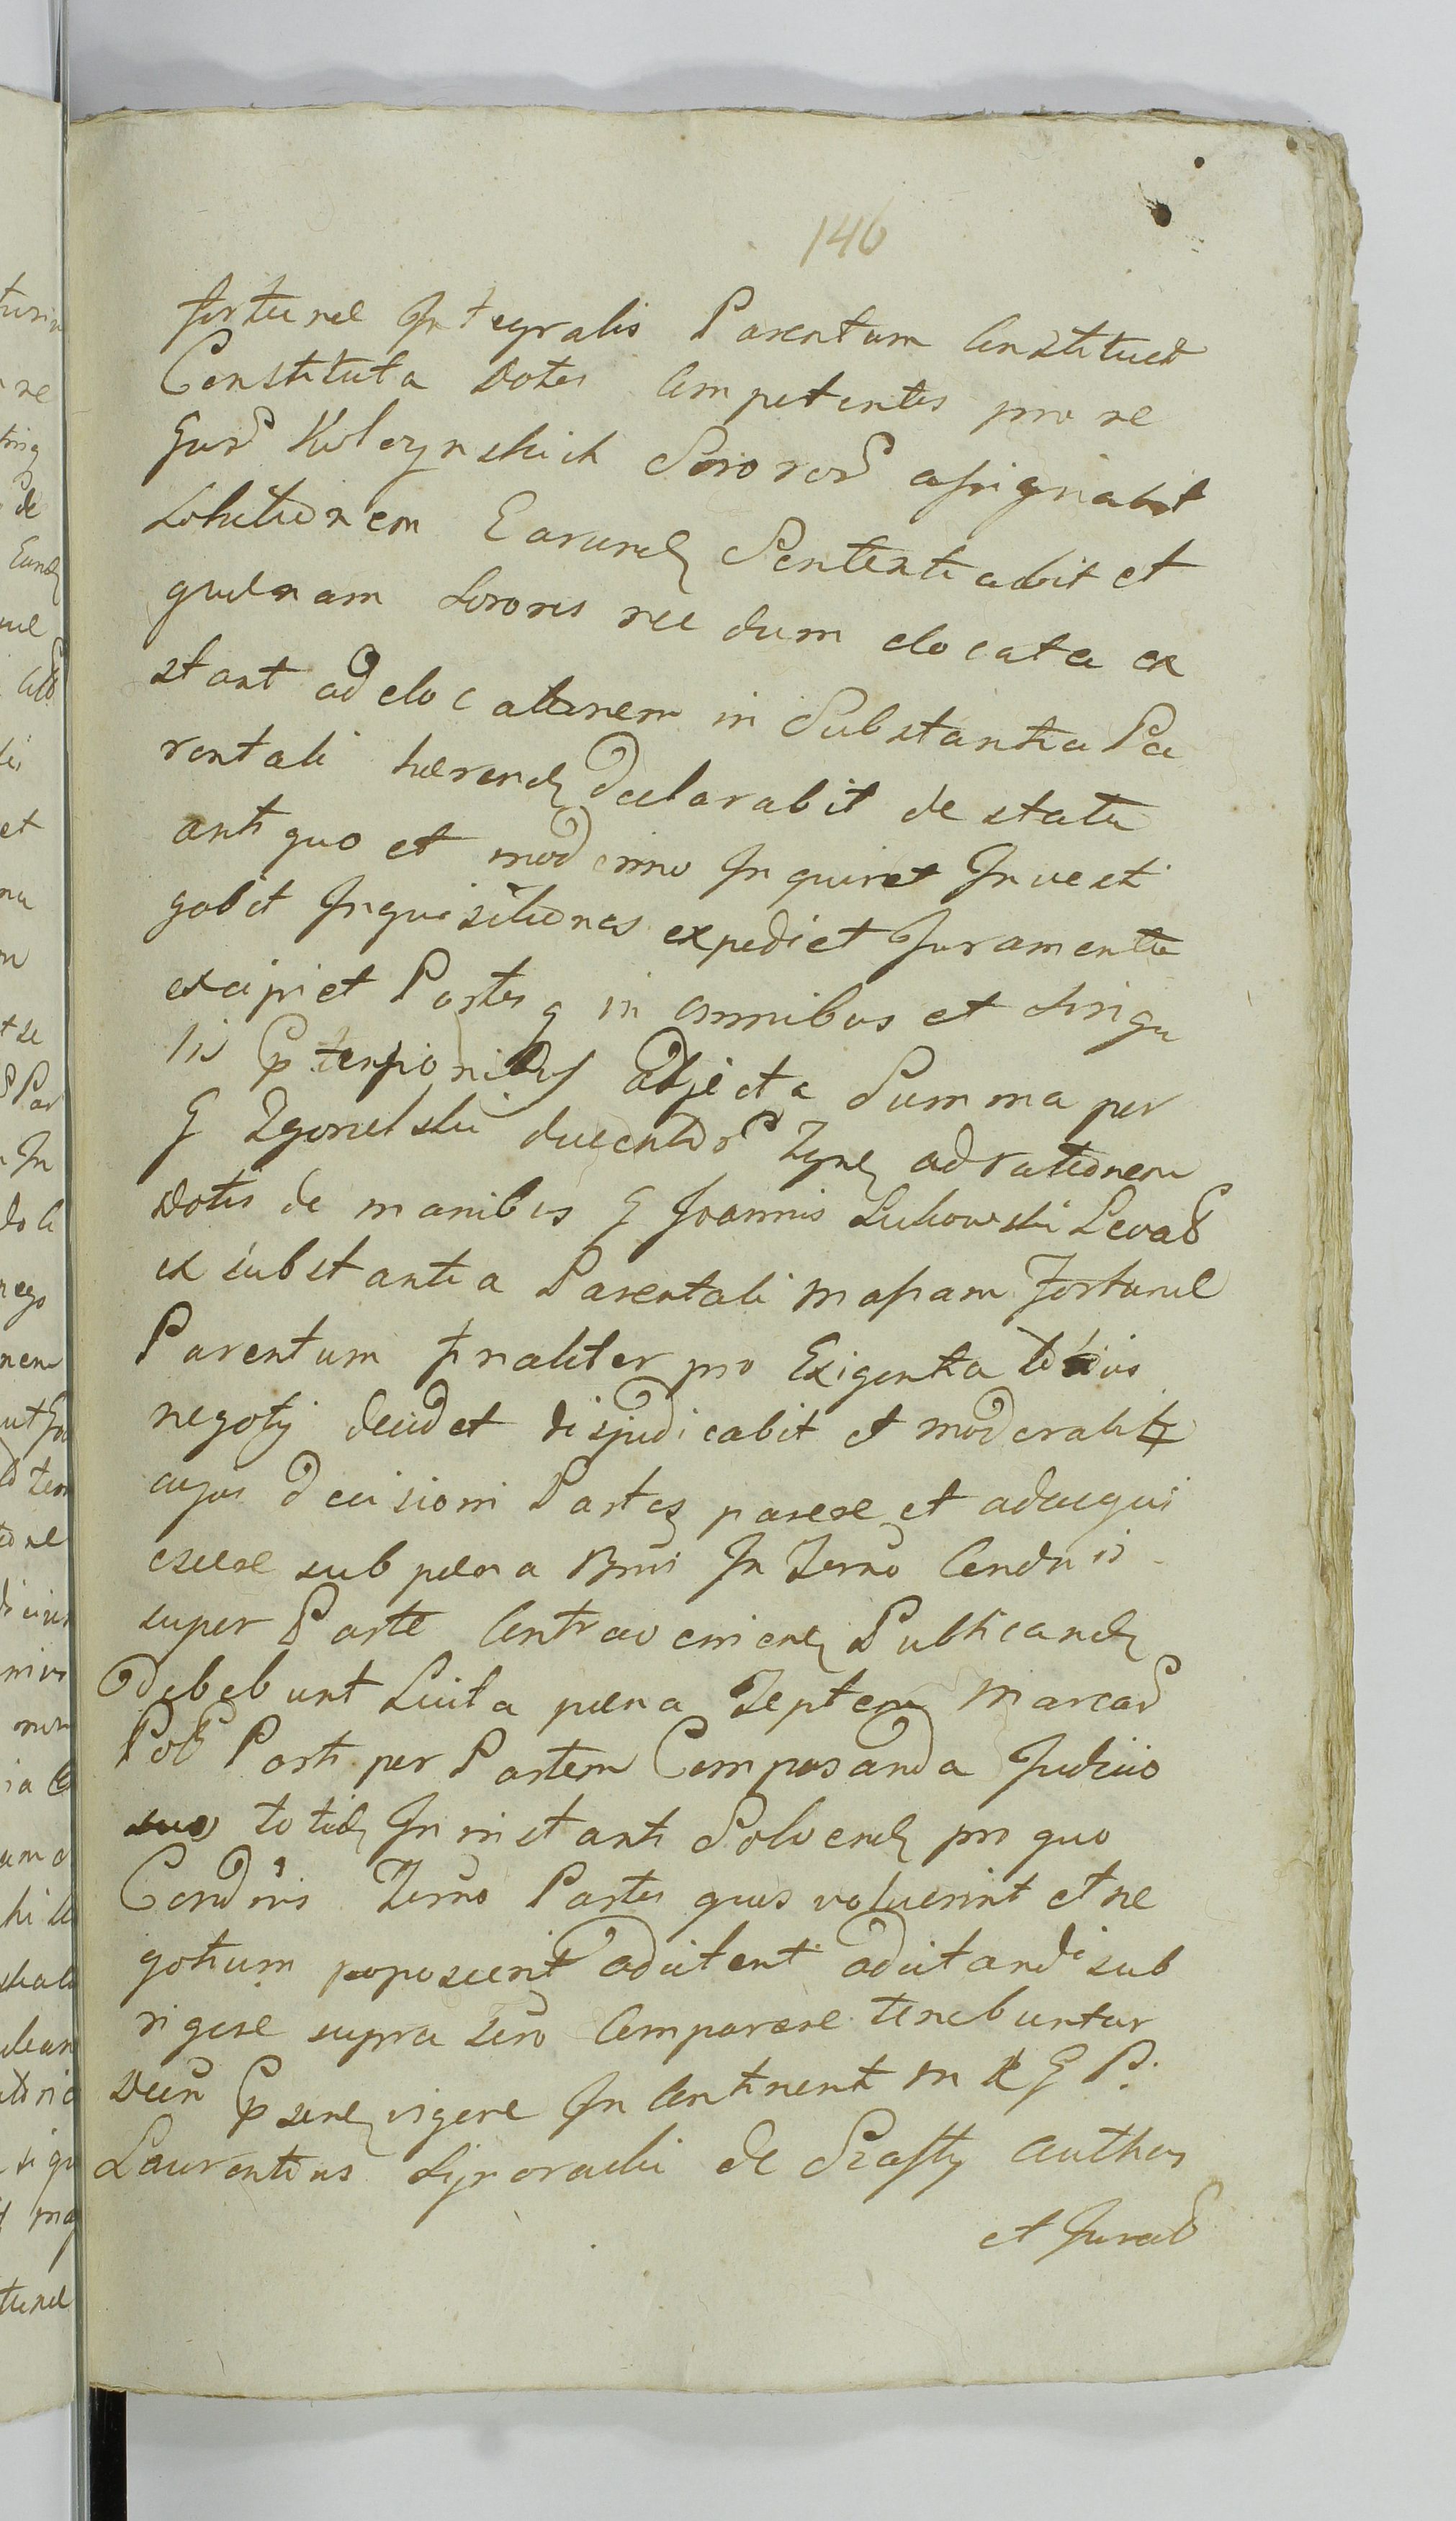 146
fortunæ Integralis Parentum Constituet
Constituta Dotes Competentes pro re
Gus Kolczynskich Soror assignabit
Solutionem Earund Sententiabit et
quænam Sorores nec dum elocata ex
stant ad elocationem in Substantia Pa
rentali hærend declarabit de statu
antiquo et moderno Inquiret Investi
gabit Inquisitiones expediet Juramenta
excipiet Partes q in omnibus et singu
lis ptensionibus Adjecta Summa per
G Zgorielski ducentor ad rationem
Dotis de manibus G Joannis Lukowski Levat
ex substantia Parentali massam Fortunæ
Parentum finaliter pro Exigentia totius
negotij decidet dijudicabit et moderabit
cujus Decisioni Partes parere et adacqui
escere sub pæna Bnni In Termo Condnis
super Parte Contravenien Publicand
Debebunt Luita pæna Septem Marcar
Pol Parti per Partem Compasanda Judicio
suo totid In instanti Solvend pro quo
Condnis Termo Partes quos voluerint et ne
gotium poposcerit adcitent adcitandi sub
rigore supra sero Comparere tenebuntur
Decr psen vigore In Continenti M R G P.
Laurentius de Szasty Author
et Jurat